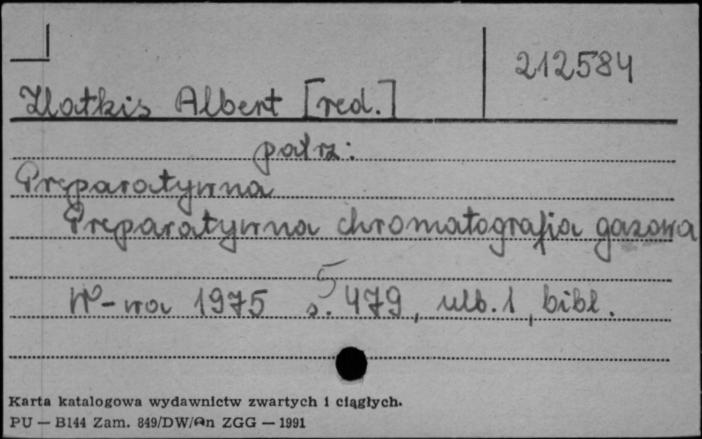 212584
Zlatkis Albert [red.]
patrz:
Preparatywna
Preparatywna chromatografia gazowa
5
W-wa 1975 s. 479, ulb. 1, bibl.
Karta katalogowa wydawnictw zwartych i ciągłych.
PU — B144 Zam. 849/DW/An ZGG — 1991